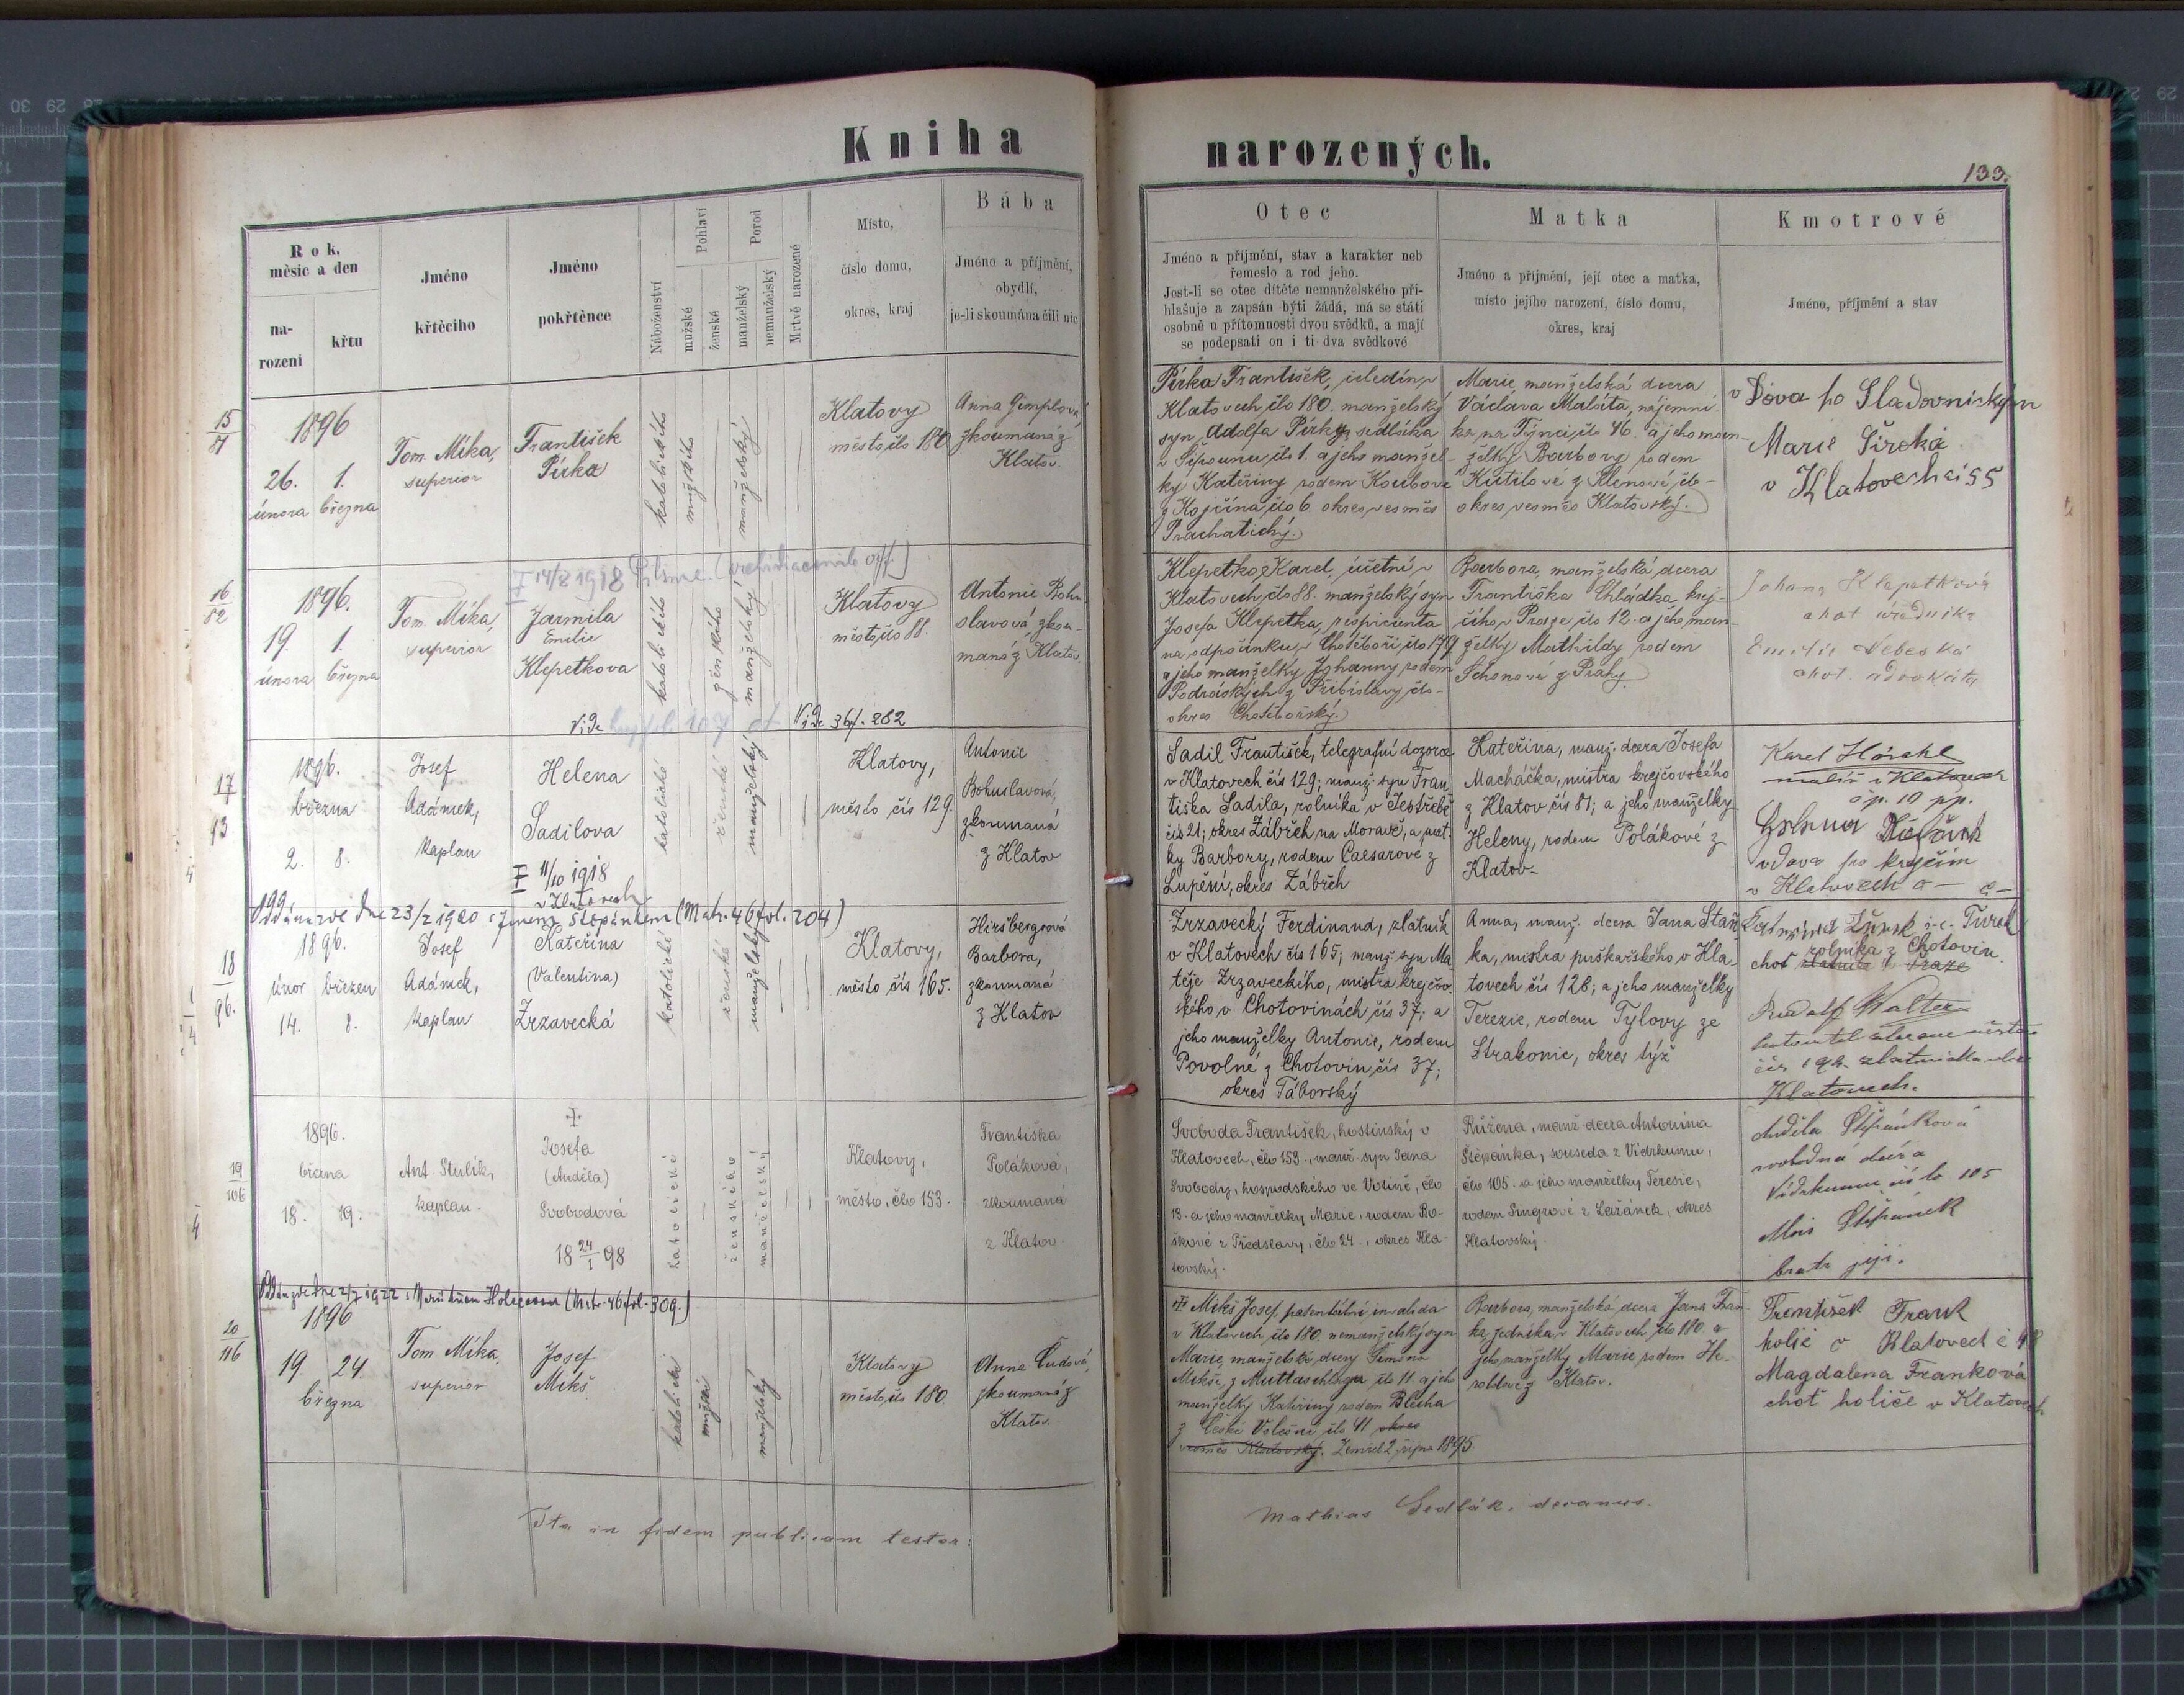 Kniha
narozených.
133.
Rok,
měsíc a den
na-
rození
křtu
Jméno
křtěcího
Jméno
pokřtěnce
Náboženství
Pohlaví
mužské
ženské
Porod
manželský
nemanželský
Mrtvě narozené
Místo,
číslo domu,
okres, kraj
Bába
Jméno a příjmění,
obydlí,
je-li skoumána čili nic
Otec
Jméno a příjmění, stav a karakter neb
řemeslo a rod jeho.
Jest-li se otec dítěte nemanželského při-
hlašuje a zapsán býti žádá, má se státi
osobně u přítomnosti dvou svědků, a mají
se podepsati on i ti dva svědkové
Matka
Jméno a příjmění, její otec a matka,
místo jejího narození, číslo domu,
okres, kraj
Kmotrové
Jméno, příjmění a stav
15
81
1896
26. 1.
února března
Tom. Míka,
superior
František
Pírka
katolického
mužského
manželský
Klatovy
město, čís 180.
Anna Gimplová,
zkoumaná z
Klatov.
Pírka František, v
Klatovech čís 180. manželský
syn Adolfa Pírky, sedláka
v čís 1. a jeho manžel-
ky Kateřiny rodem Koubové
z Kojčína, čís 6. okres vesměs
Prachatický.
Marie, manželská dcera
Václava Maláta, nájemní-
ka na Týnci, čís 46. a jeho man-
želky Barbory rodem
Kutilové z Klenové, čís -
okres vesměs Klatovský.
vdova po Sladovnickým
Marie Široká
v Klatovech či 55
16
82
1896.
19. 1.
února března
Tom. Míka,
superior
† 14/8 1918
Jarmila
Emilie
Klepetkova
katolického
ženského
manželský
Klatovy
město, čís 88.
Antonie Bohu-
slavová, zkou-
maná z Klatov.
Klepetko Karel, účetní v
Klatovech čís 88. manželský syn
Josefa Klepetka, respicienta
na odpočinku v Chotěboři, čís 179
a jeho manželky Johanny rodem
Podrázských z Přibislavy, čís -
okres Chotěbořský.
Barbora, manželská dcera
Františka Chládka, krej-
čího v Praze čís 12. a jeho man-
želky Mathildy rodem
Schonové z Prahy.
Johana Klepetková
chot úředníka
Emilie Nebeská
chot. advokáta
Vide
Vide 36 f. 282
17
93
1896.
března
2. 8.
Josef
Adámek,
kaplan
Helena
Sadilova
† 11/10 1918
v Klatovech
katolické
ženské
manželský
Klatovy,
město čís 129.
Antonie
Bohuslavová,
zkoumaná
z Klatov
Sadil František, telegrafní dozorce
v Klatovech čís 129; manž. syn Fran-
tiška Sadila, rolníka v Jestřebě
čís 21; okres Zábřeh na Moravě, a mat-
ky Barbory, rodem Caesarové z
Lupění, okres Zábřeh
Kateřina, manž. dcera Josefa
Macháčka, mistra krejčovského
z Klatov čís 81; a jeho manželky
Heleny, rodem Polákové z
Klatov-
Karel
malíř v Klatovech
čp. 10 pp.
vdova po krejčím
v Klatovech
Oddána zde dne 23/2 1920 s Štěpánkem (Matr. 46 fol. 204)
18
96.
1896.
únor březen
14. 8.
Josef
Adámek,
kaplan
Kateřina
(Valentina)
Zrzavecká
katolické
ženské
manželský
Klatovy,
město čís 165.
Hiršbergrová
Barbora,
zkoumaná
z Klatov
Zrzavecký Ferdinand, zlatník
v Klatovech čís 165; manž. syn Ma-
těje Zrzaveckého, mistra krejčov-
ského v Chotovinách čís 37; a
jeho manželky Antonie, rodem
Povolné z Chotovin, čís 37;
okres Táborský
Anna, manž. dcera Jana Staň-
ka, mistra puškařského v Kla-
tovech čís 128; a jeho manželky
Terezie, rodem Tylovy ze
Strakonic, okres týž
rolníka z Chotovin.
choť
Rudolf Walter
Klatovech.
19
106
1896.
břzna
18. 19.
Ant. Stulík,
kaplan.
†
Josefa
(Anděla)
Svobodová
18 24/1 98
katolické
ženského
manželský
Klatovy,
město, čslo 153.
Františka
Poláková,
zkoumaná
z Klatov.
Svoboda František, hostinský v
Klatovech, čslo 153., manž. syn Jana
Svobody, hospodského ve Volině, čslo
13. a jeho manželky Marie, rodem Ro-
škové z Předslavy, čslo 24., okres Kla-
tovský.
Růžena, manž. dcera Antonína
Štěpánka, souseda z Vídrkumu,
čslo 105. a jeho manželky Teresie,
rodem Singrové z Lažánek, okres
Klatovský.
Anděla Štěpánková
svobodná dcera
číslo 105
Alois Štěpánek
bratr její.
1922 s (Matr. 46 fol. 309.)
20
116
1896
19. 24.
března
Tom Míka,
superior
Josef
Mikš
katolické
mužské
manželský
Klatovy
město, čís 180.
Anna Čudová,
zkoumaná z
Klatov.
Mikš Josef, patentální invalida
v Klatovech, čís 180, nemanželský syn
Marie, manželské dcery Šimona
Mikše, z Muttaschlagu čís 11. a jeho
manželky Kateřiny rodem Blecha
z České Volešné čís 41 okres
vesměs Klatovský. Zemřel 2. října 1895
Barbora, manželská dcera Jana Fran-
ka, v Klatovech, čís 180 a
jeho manželky Marie rodem He-
roldové z Klatov.
František Frank
holič v Klatovech č 48
Magdalena Franková
choť holiče v Klatovech
Ita in fidem publicam testor:
Mathias Sedlák, decanus.